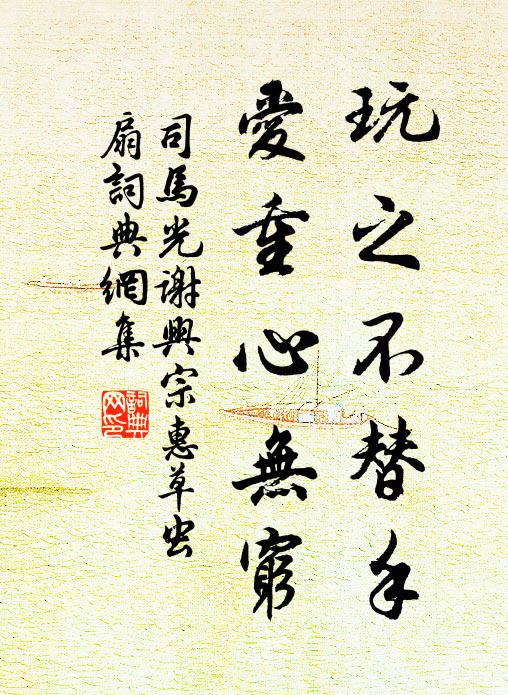 玩之不替手
愛重心無窮
司馬光謝興宗惠草虫
扇詞典網集
詞典網印